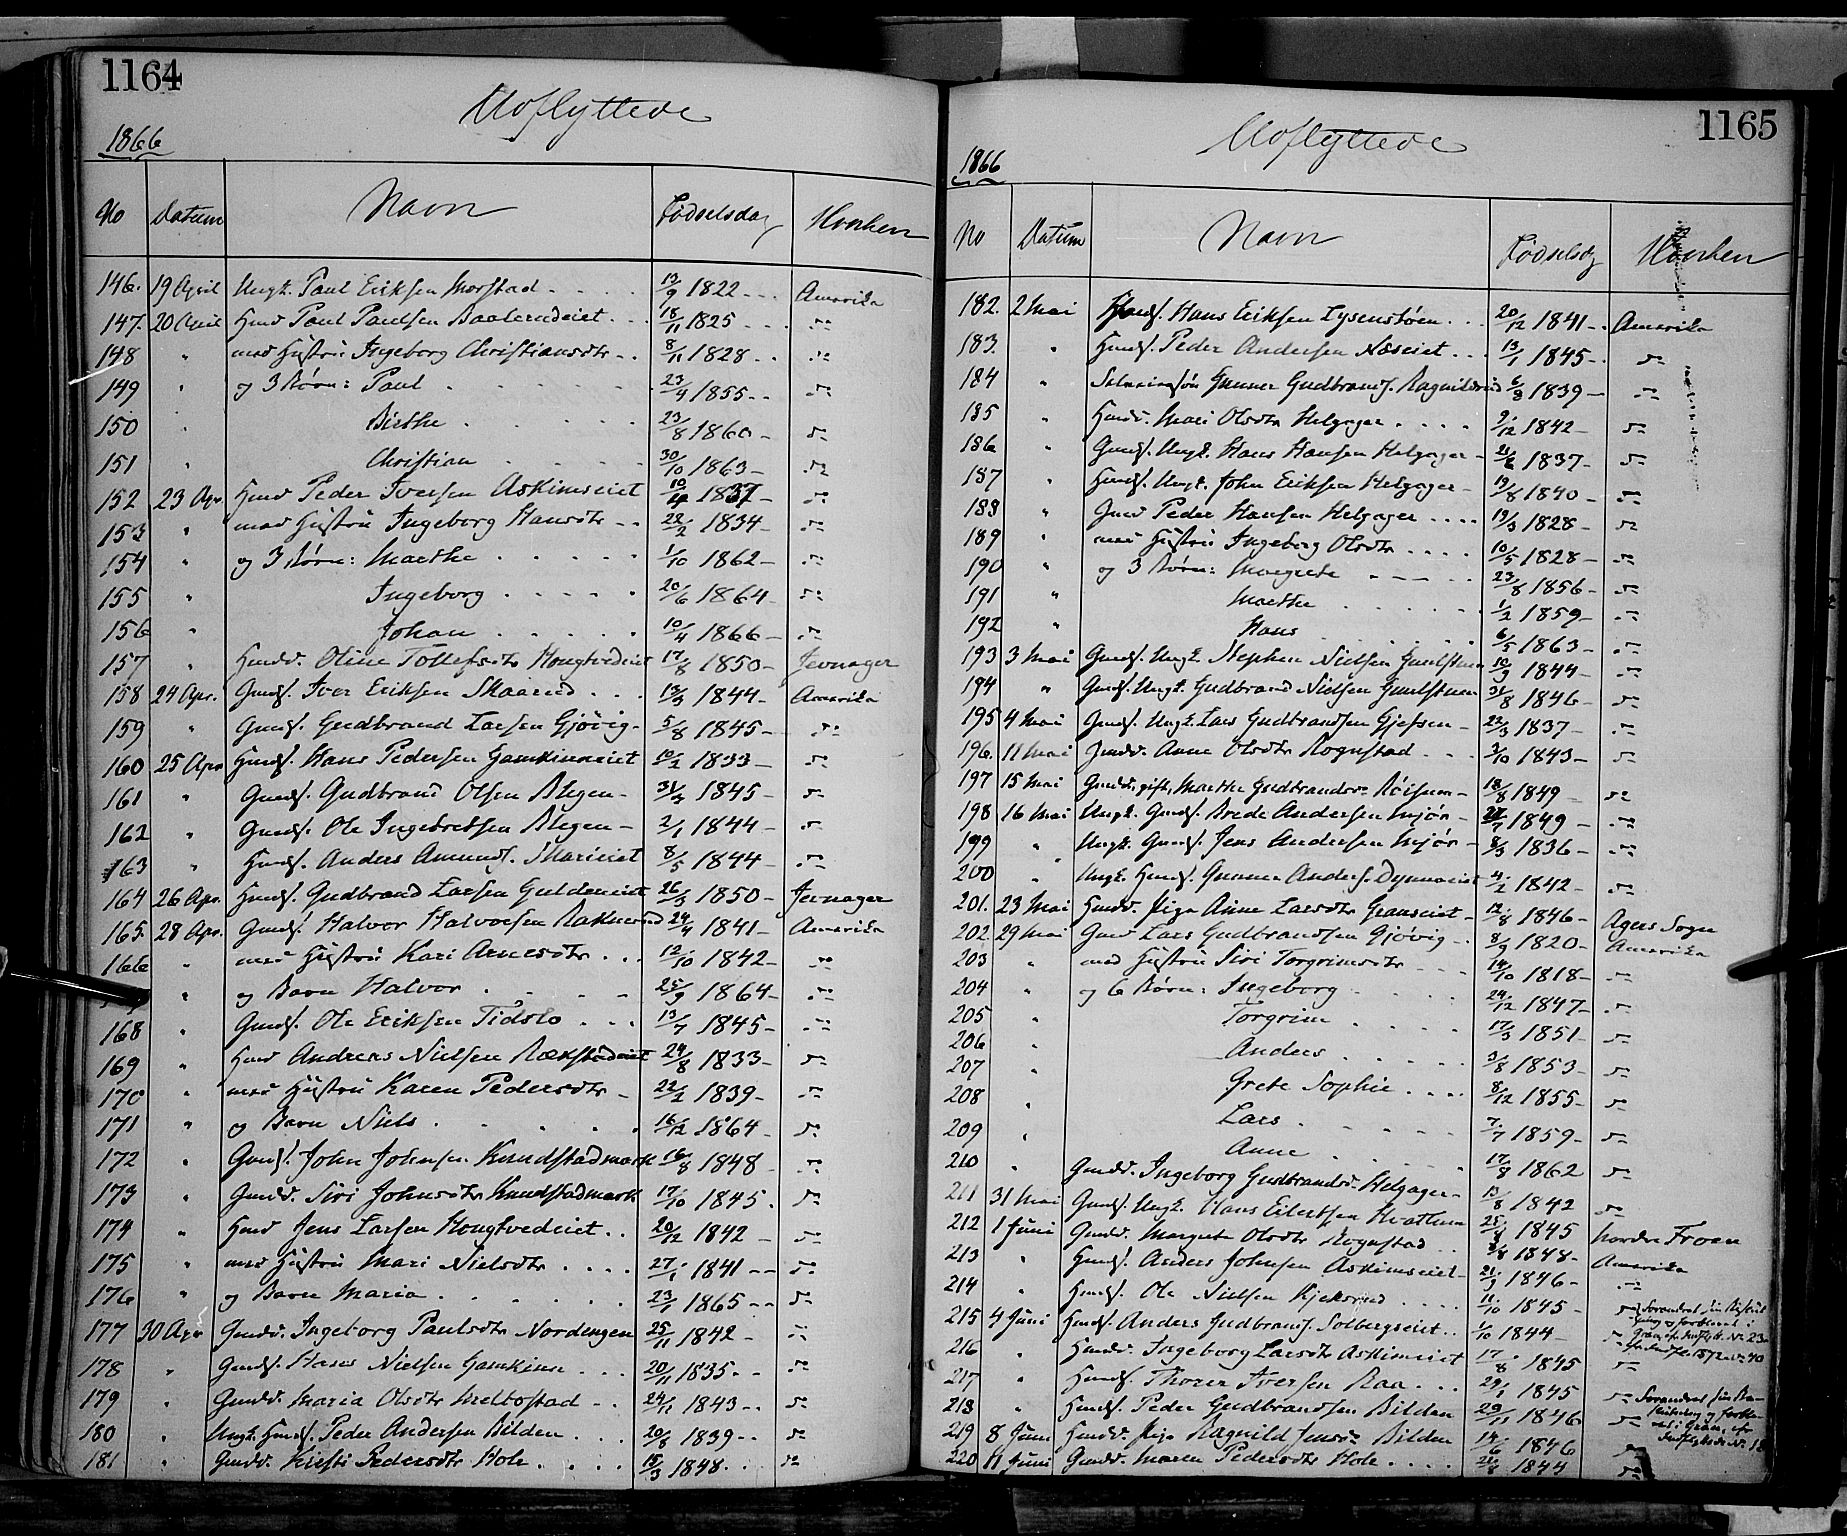 1164
Udflyttede
1866
No Datum Navn Fødselsdag Hvorhen
146. 19 April Ungk. Paul Eriksen Morstad 13/9 1822 Amerika
147. 20 April Husmd Paul Paulsen 18/11 1825 do
148 " med Hustru Ingeborg Christiansdtr 8/11 1828 do
149 " og 3 Børn: Paul 23/4 1855 do
150 " Birthe 23/8 1860 do
151 " Christian 30/10 1863 do
152 23 Apr. Peder Iversen Askimseiet 10/4 1837 do
153 " med Hustru Ingeborg Hansdtr 22/2 1834 do
154 " og 3 Børn: Marthe 1/10 1862 do
155 " Ingeborg 20/6 1864 do
156 " Johan 10/4 1866 do
157 " Oline Tollefsdtr Hougtvedeiet 17/8 1850 Jevnager
158 24 Apr. Gmdf. Iver Eriksen Skaarud 1844 Amerika
159 " Gmdf. Gudbrand Larsen Gjøvig 5/8 1845 do
160 25 Apr Hmdf. Hans Pedersen 10/2 1833 do
161 " Gmdf. Gudbrand Olsen Blegen 1845 do
162 " Gmdf. Ole Ingebretsen Blegen 2/1 1844 do
163 " Hmdf. Anders Amundf. 8/5 1844 do
164 26 Apr. Hmdf. Gudbrand Larsen Guldeneiet 26/3 1850 Jevnager
165. 28 Apr. Gmdf. Halvor Halvorsen 24/4 1841 Amerika
166 " med Hustru Kari Arnesdtr 12/10 1842 do
" og Barn Halvor 25/9 1864 do
168 " Gmdf. Ole Eriksen Tidslo 13/7 1845 do
169 " Andreas Nielsen 24/8 1833 do
170 " med Hustru Karen Pedersdtr 22/2 1839 do
171 " og Barn Niels 16/12 1864 do
172 " Gmdf. John Johnsen Knudstadmark 16/8 1848 do
173 " Gmdd. Siri Johnsdtr Knudstadmark 17/10 1845 do
174 " Jens Larsen Hougtvedeiet 20/12 1842 do
175 " med Hustru Mari Nielsdtr 27/1 1841 do
176 " og Barn Maria 23/1 1865 do
177 30 Apr Gmdd. Ingeborg Paulsdtr Nordengen 25/11 1842 do
178 " Gmdf. Hans Nielsen 20/11 1835 do
179 " Gmdd. Maria Olsdtr Melbostad 24/1 1843 do
180 " Ungk. Hmdf. Peder Andersen Bilden 20/8 1839 do
181 " Gmdd. Kirsti Pedersdtr Hole 1848 do
1165
Udflyttede
1866
No Datum Navn Fødselsdg Hvorhen
182. 2 Mai Hans Eriksen Lysenstøen 20/12 1841 Amerika
183. " Hmdf. Peder Andersen Næseiet 13/1 1845 do
184 " Gunner Gudbrandf. Ragnildrud 6/8 1839 do
185 " Hmdd. Mari Olsdtr Helgager 9/12 1842 do
186 " Gmdf. Ungk. Hans Hansen Helgager 1837 do
187 " Hmdf. Ungk. John Eriksen Helgager 19/8 1840 do
188 " Gmd Peder Hansen Helgager 19/3 1828 do
189 " med Hustru Ingeborg Olsdtr 10/5 1828 do
190 " og 3 Børn: Margrete 23/8 1856 do
191 " Marthe 1/2 1859 do
192 " Hans 6/5 1863 do
193 3 Mai Gmdf. Ungk. Stephen Nielsen 10/9 1844 do
194 " Gmdf. Ungk. Gudbrand Nielsen 31/8 1846 do
195 4 Mai Gmdf. Ungk. Lars Gudbrandsen Gjefsen 22/3 1837 do
196. 11 Mai Gmdd. Anne Olsdtr Rognstad 3/10 1843 do
197 15 Mai Gmdd, gift, Marthe Gudbrandsdr 18/8 1849 do
198 16 Mai Ungk. Gmdf. Brede Andersen Mjør 1849 do
199 " Ungk. Gmdf. Jens Andersen Mjør 8/3 1836 do
200 " Ungk. Hmdf. Gunner Andersf. 1842 do
201. 23 Mai Hmdd. Pige Anne Larsdtr Granseiet 12/8 1846 Agers Sogn
202. 29 Mai Gmd Lars Gudbrandsen Gjøvig 1820 Amerika
203 " med Hustru Siri Torgrimsdtr 14/10 1818 do
204 " og 6 Børn: Ingeborg 24/12 1847 do
205 " Torgrim 17/3 1851 do
206 " Anders 3/8 1853 do
207 " Grete Sophie 8/12 1855 do
208 " Lars 7/7 1859 do
209 " Anne 17/8 1862 do
210 " Gmdd. Ingeborg Gudbrandsd. Helgager 13/8 1842 do
211 31 Mai Gmdf. Ungk. Hans Eilertsen Kvathum 1845 Nordre Froen
212 1 Juni Gmdd. Margrete Olsdtr Rognstad 1848 Amerika
213 " Hmdf. Anders Johnsen Askimseiet 1846 do
214 " Hmdf. Ole Nielsen Kjeksrud 11/10 1845 do
215 4 Juni Hmdf. Anders Gudbrandf. Solbergseiet 1/10 1844 do
216 " Hmdd. Ingeborg Larsdtr Askimeiet 17/8 1845 do
217 " Hmdf. Thorer Iversen Raa 1845 do
218 " Hmdf. Peder Gudbrandsen Bilden 29/11 1846 do
219 8 Juni Hmdd. Pige Ragnild Jensdr Bilden 14/6 1846 do
220 11 Juni Gmdd. Maren Pedersdtr Hole 1844 do